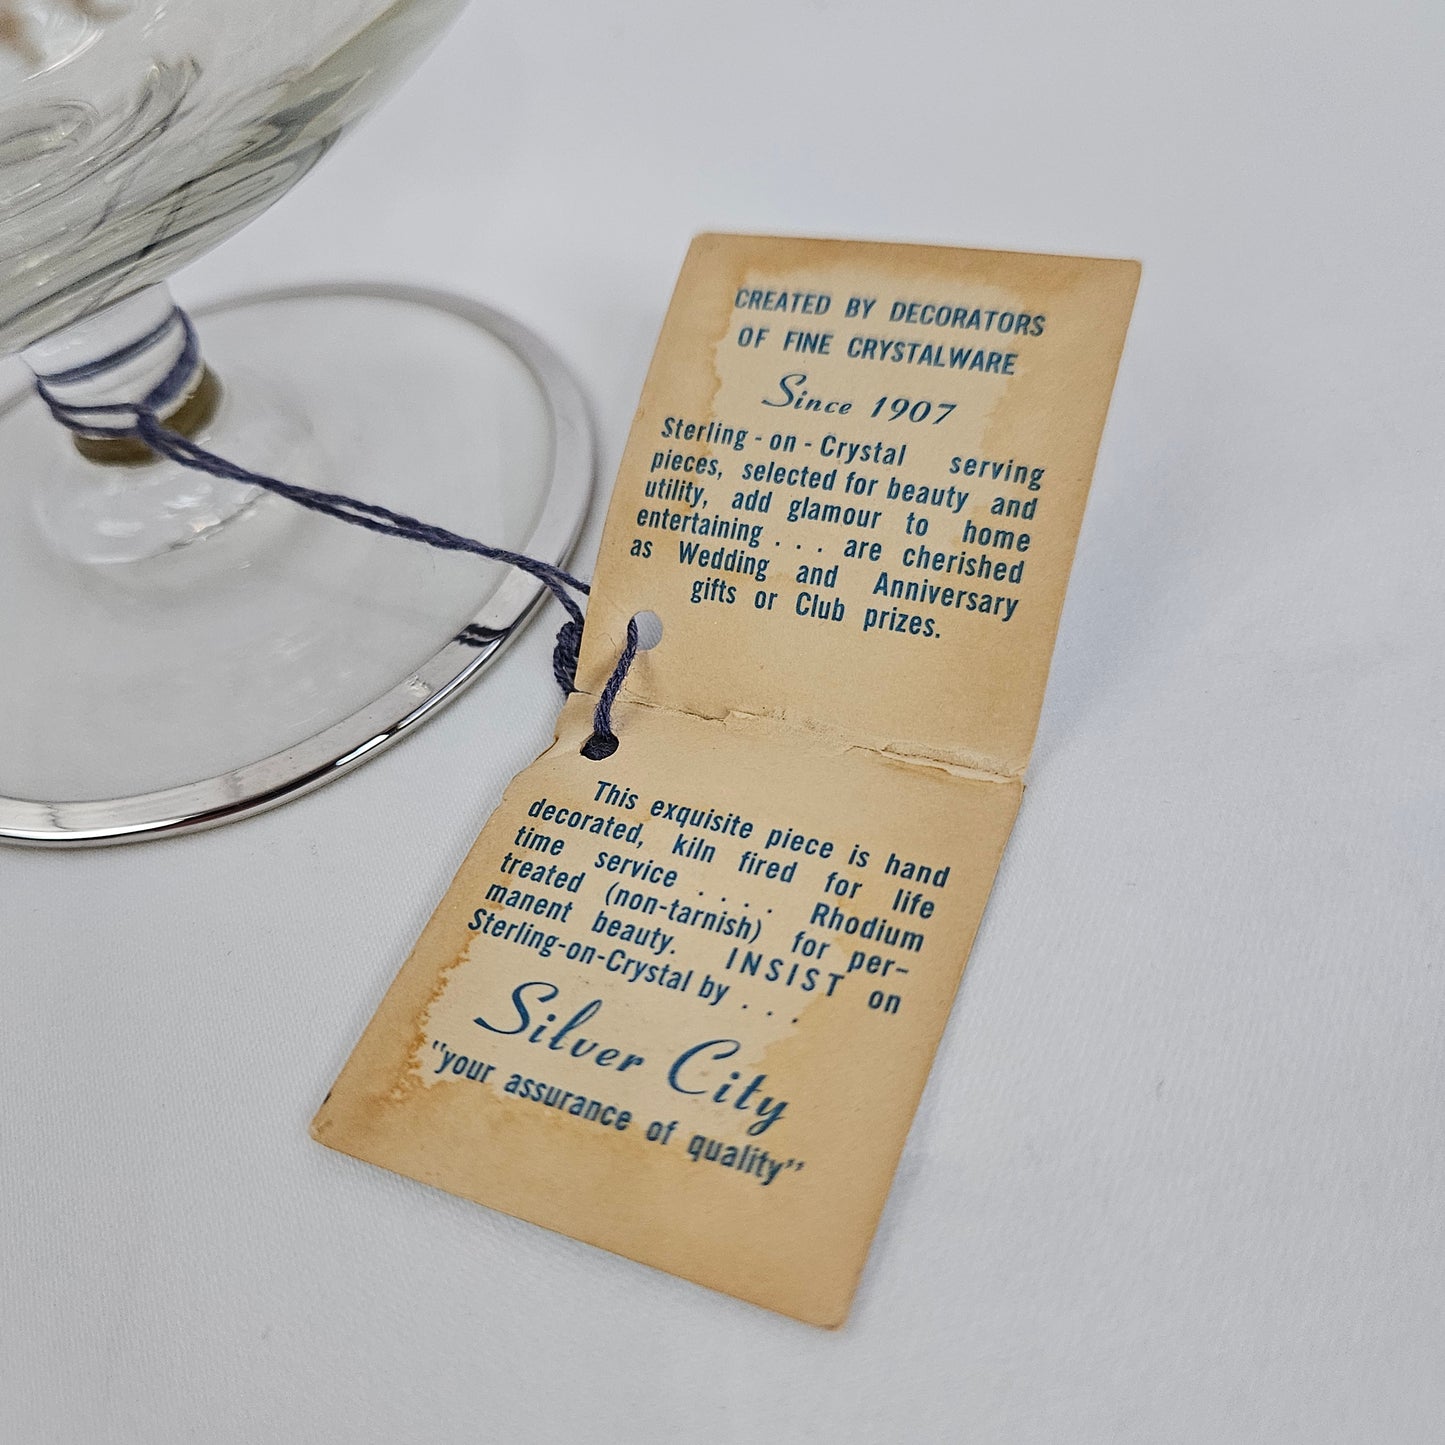 CREATED BY DECORATORS
OF FINE CRYSTALWARE
Since 1907
Sterling - on - Crystal serving
pieces, selected for beauty and
utility, add glamour to home
entertaining . . . are cherished
as Wedding and Anniversary
gifts or Club prizes.
This exquisite piece is hand
decorated, kiln fired for life
time service . . . . Rhodium
treated (non-tarnish) for per-
manent beauty. INSIST on
Sterling-on-Crystal by . . .
Silver City
"your assurance of quality"